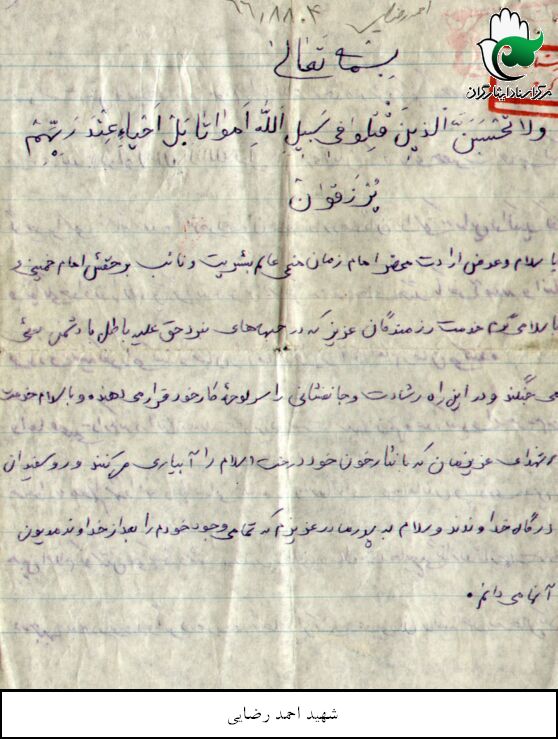 احمد رضایی
66,188.4
مرکز اسناد ایثارگران
بسمه تعالی
ولا تَحْسَبَنَّ الَّذینَ قُتِلوا فی سَبیلِ اللّهِ اَمواتا بَلْ اَحْیاءِ عِنْدَ رَبِّهِمْ
یُرْزَقوُنَ
با سلام و عرض ارادت محضر امام زمان منجی عالم بشریت و نائب بر حقش امام خمینی و
با سلامی گرم خدمت رزمندگان عزیز که در جبهه‌های نبرد حق علیه باطل با دشمن بعثی
می جنگند و در این راه رشادت و جانفشانی را سرلوحهٔ کار خود قرار می دهند و با سلام خدمت
شهدای عزیزمان که با نثار خون خود درخت اسلام را آبیاری می‌کنند و رو سفیدان
درگاه خداوندند و سلام به پدر مادر عزیزم که تمامی وجود خودم را بعد از خداوند مدیون
آنها می دانم.
شهید احمد رضایی